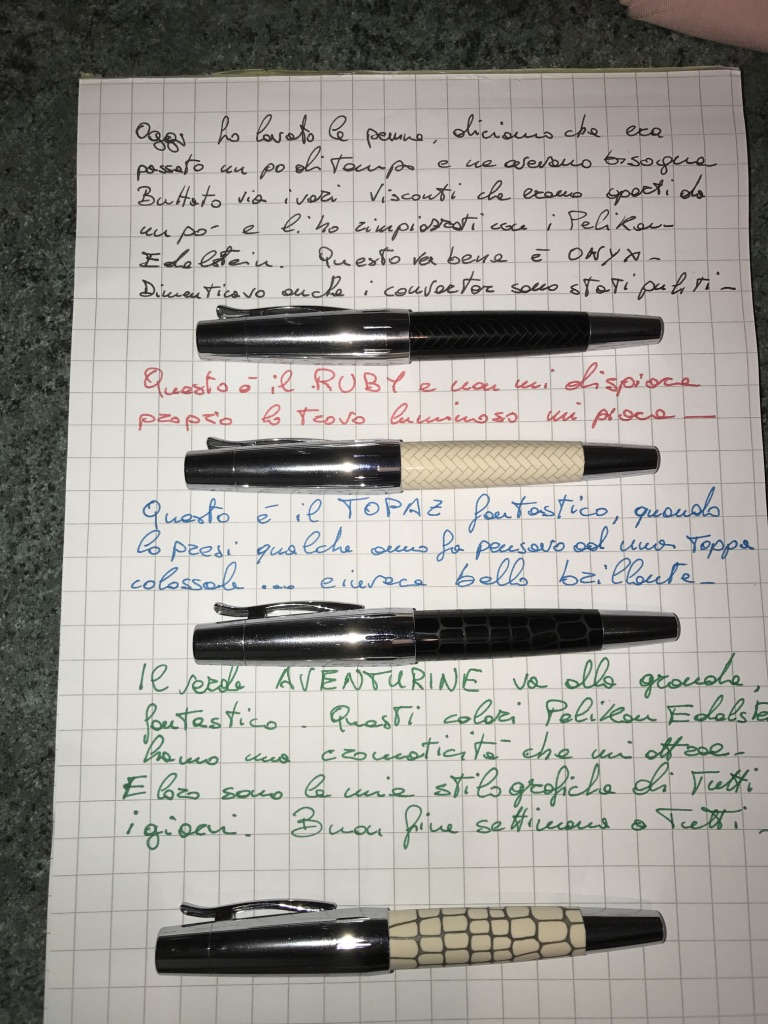 Oggi ho lavato le penne, diciamo che era
passato un po di tempo e ne avevano bisogna
Buttato via i vari Visconti che erano aperti da
un po' e li ho rimpiazzati con i Pelikan
Edelstein. Questo va bene è ONYX -
Dimenticavo anche i convertor sono stati puliti -
Questo è il RUBY e non mi dispiace
proprio lo trovo luminoso mi piace —
Questo è il TOPAZ fantastico, quando
lo presi qualche anno fa pensavo ad una Toppa
colossale ... e invece bello brillante -
Il verde AVENTURINE va alla grande,
fantastico. Questi colori Pelikan Edelste
hanno una cromaticità che mi attrae -
E loro sono le mie stilografiche di Tutti
i giorni. Buon fine settimana a Tutti -